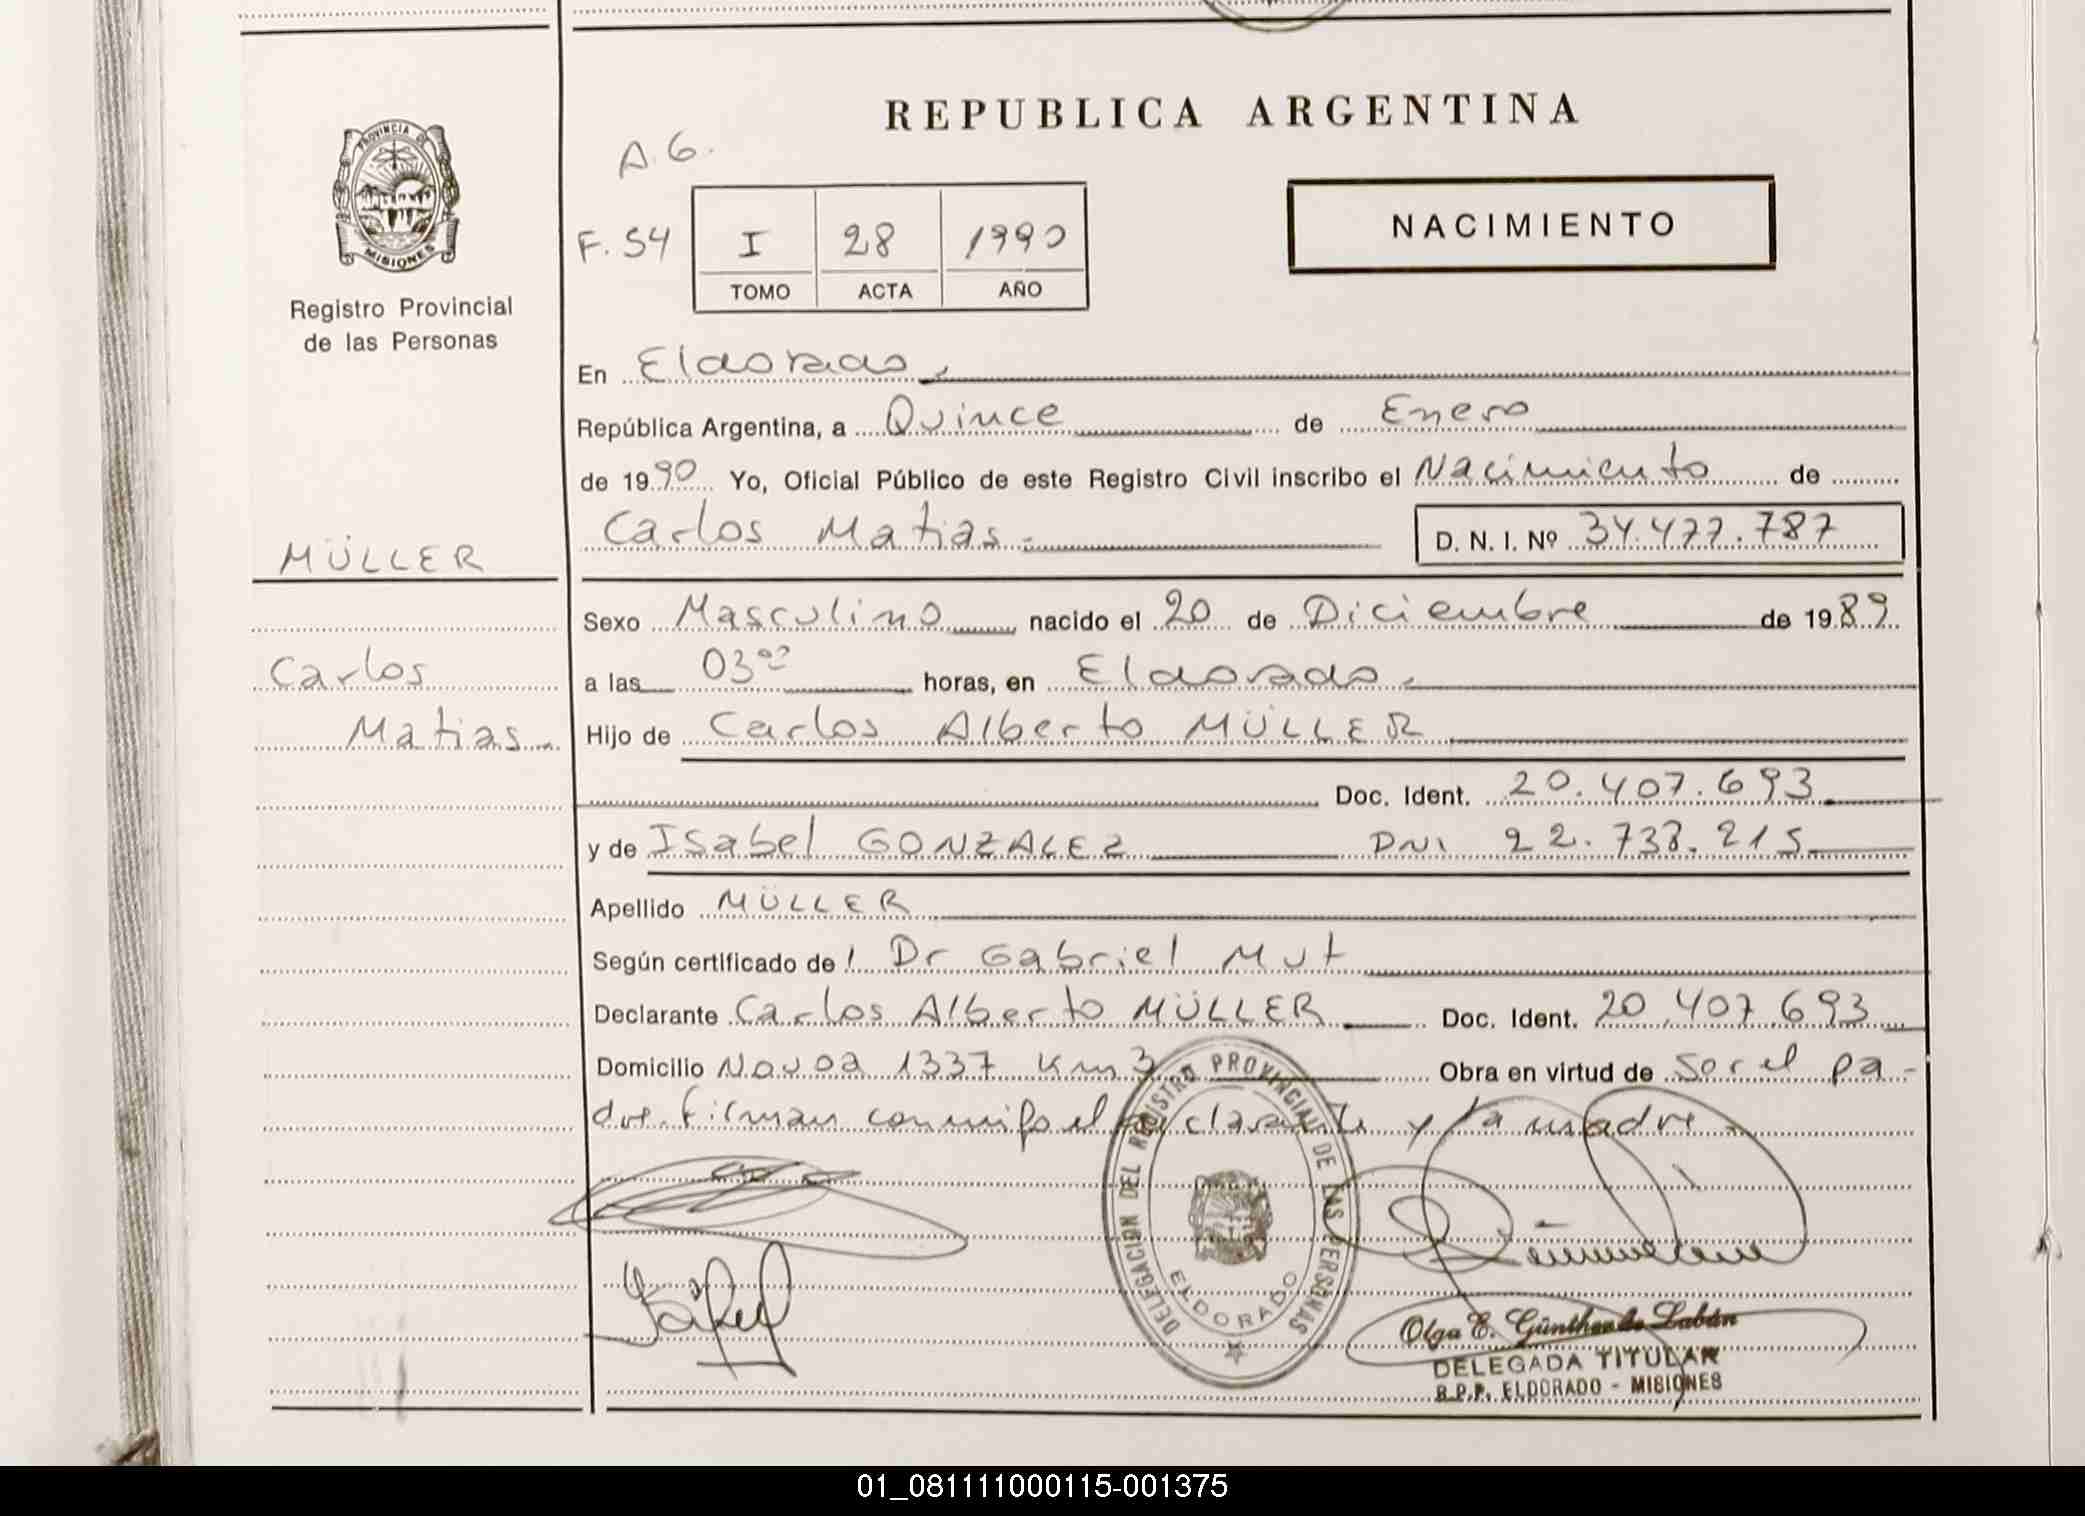 REPUBLICA ARGENTINA
A. G.
F. 54
I 28 1990
TOMO ACTA AÑO
NACIMIENTO
PROVINCIA DE
MISIONES
Registro Provincial
de las Personas
MÜLLER
Carlos
Matias.
En Eldorado.
República Argentina, a Quince de Enero
de 1990 Yo, Oficial Público de este Registro Civil inscribo el Nacimiento de
Carlos Matias.- D. N. I. Nº 34.477.787
Sexo Masculino nacido el 20 de Diciembre de 1989
a las 03⁰⁰ horas, en Eldorado.
Hijo de Carlos Alberto MÜLLER
Doc. Ident. 20.407.693
y de Isabel GONZALEZ DNI 22.738.215
Apellido MÜLLER
Según certificado de l Dr Gabriel Mut
Declarante Carlos Alberto MÜLLER Doc. Ident. 20.407.693
Domicilio Novoa 1337 Km 3 Obra en virtud de ser el pa-
dre. Firman conmigo el declarante y la madre.
DELEGACION DEL REGISTRO PROVINCIAL DE LAS PERSONAS
ELDORADO
Olga E. Günther de Labán
DELEGADA TITULAR
R.P.P. ELDORADO - MISIONES
01_081111000115-001375